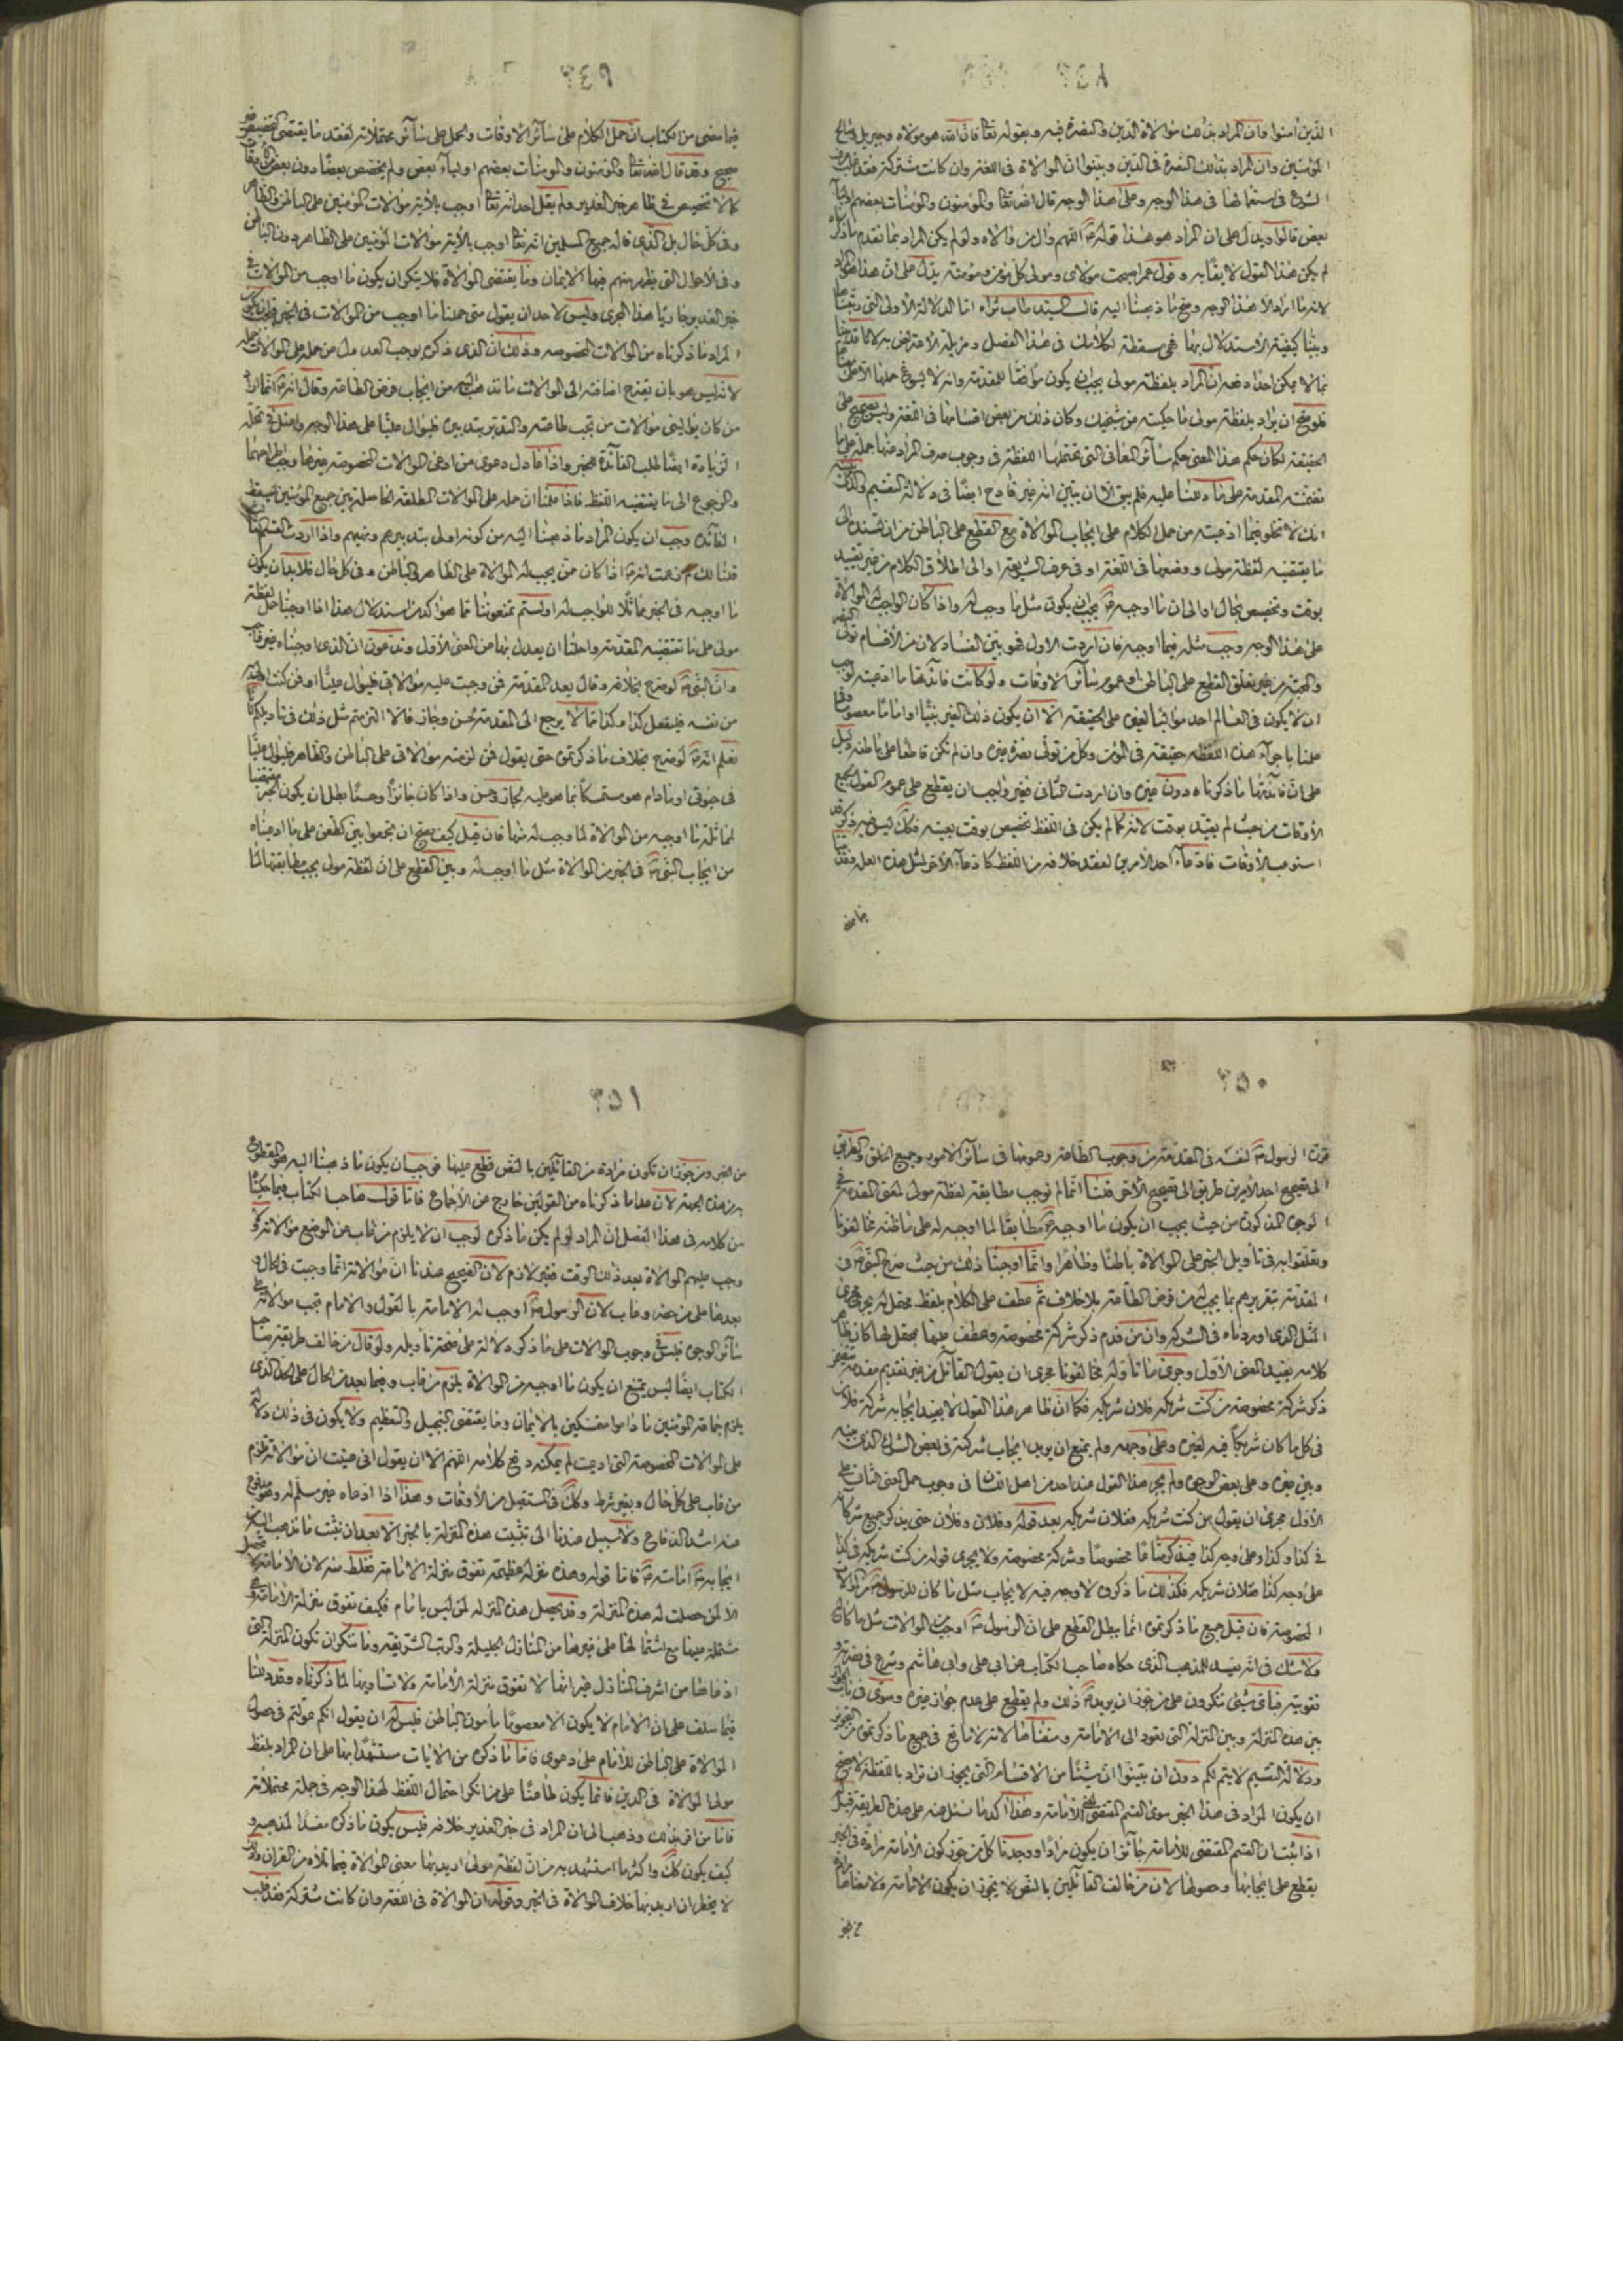 ٣٤٨
الذين امنوا وان المراد بذلك موالاة الدين والنصرة فيه وبقوله تعا فان الله هو مولاه وجبريل وصالح
المؤمنين وان المراد بذلك النصرة في الدين وبينوا ان الموالاة في اللغة وان كانت مشتركة فقد غلب عرف
الشرع في استعمالها في هذا الوجه وعلى هذا الوجه قال الله تعا والمؤمنون والمؤمنات بعضهم اولياء
بعض قالوا ويدل على ان المراد هو هذا قوله اللهم وال من والاه ولو لم يكن المراد بما تقدم ما ذكرناه
لم يكن هذا القول لايقا به وقول عمر اصبحت مولاى ومولى كل مؤمن ومؤمنة يدل على ان هذا هو المراد
لانه ما اراد الا هذا الوجه وصح ما ذهبنا اليه قال السيد طاب ثراه اما الدلالة الاولى التي رتبناها
وبينا كيفية الاستدلال بها فهي مسقطة لكلامك في هذا الفصل ومزيلة للاعتراض به لانا قد بينا
بما لا يمكن احدا دفعه ان المراد بلفظة مولى يجب ان يكون موافقا للمقدمة وانه لا يسوغ حملها الا على معناها
فلو صح ان يراد بلفظة مولى ما حكيته عن شيخيك وكان ذلك من بعض اقسامها في اللغة وليس بصحيح على
الحقيقة لكان حكم هذا المعنى حكم سائر المعاني التي تحتملها اللفظة في وجوب صرف المراد عنها وحمله على ما
تضمنته المقدمة على ما دللنا عليه فلم يبق الا ان يتبين انه غير قادح ايضا في دلالة التقسيم والذي يبينه
انك لا تخلو فيما ادعيته من حمل الكلام على ايجاب الموالاة مع القطع على الباطن من ان تسنده الى
ما يقتضيه لفظة مولى ووضعها في اللغة او في عرف الشريعة او الى اطلاق الكلام من غير تقييد
بوقت وتخصيص بحال او الى ان ما اوجبه يجب ان يكون مثل ما وجب له واذا كان الواجب له الموالاة
على هذا الوجه وجب مثله فيما اوجبه فان اردت الاول فهو بين الفساد لان من الاقسام تولى النصرة
والمحبة من غير تعلق القطع على الباطن او عموم سائر الاوقات ولو كانت فائدتها ما ادعيته لوجب
ان لا يكون في العالم احد مواليا لغيره على الحقيقة الا ان يكون ذلك الغير نبيا او اماما معصوما وفي
علمنا باجراء هذه اللفظة حقيقة في المؤمن وكل من تولى نصرة غيره وان لم تكن قاطعا على باطنه دليل
على ان فائدتها ما ذكرناه دون غيره وان اردت الثاني فغير واجب ان يقطع على عموم القول لجميع
الاوقات من حيث لم يقيد بوقت لانه كما لم يكن في اللفظ تخصيص بوقت بعينه فكك ليس فيه ذكر قد
استوعب الاوقات فادعاء احد الامرين لفقد خلافه من اللفظ كادعاء الاخر لمثل هذه العلة وقد بينا
فيما مضى
٣٤٩
فيما مضى من الكتاب ان حمل الكلام على سائر الاوقات والحمل على سائر محتملاته لفقد ما يقتضي التخصيص غير
صحيح وقد قال الله تعا والمؤمنون والمؤمنات بعضهم اولياء بعض ولم يخصص بعضا دون بعض ولا وقتا
كما لا تخصيص في ظاهر خبر الغدير ولم يقل احد انه تعا اوجب بالاية موالات المؤمنين على الباطن والظاهر
وفي كل حال بل الذي قاله جميع المسلمين انه تعا اوجب بالاية موالات المؤمنين على الظاهر دون الباطن
وفي الاحوال التي يظهر منهم فيها الايمان وما يقتضي الموالاة فلا ينكر ان يكون ما اوجب من الموالات في
خبر الغدير جاريا هذا المجرى وليس لاحد ان يقول متى حملنا ما اوجب من الموالات في الخبر
المراد ما ذكرناه من الموالات المخصوصه وذلك ان الذي ذكره يوجب العدول عن حمله على الموالات جملة
لانه ليس هو بان يقترح اضافته الى الموالات ما ندعيه من ايجاب فرض الطاعة وقال انه انما اراد
من كان يواليني موالات من تجب طاعته والتدبر بتدبيره فليوال عليا على هذا الوجه واعتل في تحمله
الزيادة ايضا لطلب الفائدة للخبر واذا عادل دعوى من ادعى الموالات المخصوصة غيرها وجب اطراحهما
والرجوع الى ما يقتضيه اللفظ فاذا علمنا ان حمله على الموالات المطلقة الحاصلة بين جميع المؤمنين يسقط
الفائدة وجب ان يكون المراد ما ذهبنا اليه من كونه اولى بتدبيرهم ونهيهم واذا اردت القسم الثالث
قلنا لك لم زعمت انه اذا كان ممن يجب له الموالاة على الظاهر والباطن وفي كل حال فلا بد ان يكون
ما اوجبه في الخبر مماثلا للواجب له او لستم تمنعوننا مما هو اكد من استدلال هذا اذا اوجبنا حمل لفظة
مولى على ما تقتضيه المقدمة واحلنا ان يعدل بها عن المعنى الاول وتدعون ان الذي اوجبناه غير واجب
وان النبي لو صرح بخلافه وقال بعد المقدمة فمن وجبت عليه موالاتي فليوال عليا او فمن كنت اولى به
من نفسه فليفعل كذا وكذا مما لا يرجع الى المقدمة لحسن وجاز فالا التزمتم مثل ذلك في تاويلكم لانا
نعلم انه لو صرح بخلاف ما ذكرتموه حتى يقول فمن لزمته موالاتي على الباطن والظاهر فليوال عليا
في حيوتي او مادام هو متمسكا بما هو عليه لجاز وحسن واذا كان جائزا وحسنا بطل ان يكون الخبر مقتضيا
لمماثلة ما اوجبه من الموالاة لما وجب له منها فان قيل كيف يصح ان تجمعوا بين كطعن على ما ادعيناه
من ايجاب النبي في الخبر من الموالاة مثل ما اوجب له وبين القطع على ان لفظة مولى يجب مطابقتها لما
٣٥٠
قرره الرسول لنفسه في المقدمة من وجوب الطاعة وعمومها في سائر الامور وجميع الخلق والطريق
الى تصحيح احد الامرين طريق الى تصحيح الاخر قلنا انما لم نوجب مطابقة لفظة مولى لمعنى المقدمة في
الوجوه المذكورة من حيث يجب ان يكون ما اوجبه مطابقا لما اوجبه له على ما ظنه مخالفونا
وتعلقوا به في تاويل الخبر على الموالاة باطنا وظاهرا وانما اوجبنا ذلك من حيث صرح النبي في
المقدمة بتقريرهم بما يجب له من فرض الطاعة بلا خلاف ثم عطف على الكلام بلفظ محتمل له يجري مجرى
المثل الذي اوردناه في الشركه وان من قدم ذكر شركة مخصوصة وعطف عليها بمحتمل لها كان ظاهر
كلامه يفيد المعنى الاول وجرى ما تاوله مخالفونا مجرى ان يقول القائل من غير تقديم مقدمة تتضمن
ذكر شركة مخصوصة من كنت شريكه فلان شريكه فكما ان ظاهر هذا القول لا يفيد ايجابه شركة فلان
في كل ما كان شريكا فيه لغيره وعلى وجهه ولم يمتنع ان يريد ايجاب شركته في بعض الشرك الذي بينه
وبين غيره وعلى بعض الوجوه ولم يجر هذا القول عند احد من اهل اللسان في وجوب حمل المعنى الثاني على
الاول مجرى ان يقول من كنت شريكه ففلان شريكه بعد قوله وفلان وفلان حتى يذكر جميع شركائه
في كذا وكذا وعلى وجه كذا فيذكر متاعا مخصوصا وشركة مخصوصة ولا يجري قوله من كنت شريكه في كذا
على وجه كذا ففلان شريكه فكذلك ما ذكروه لا وجه فيه لايجاب مثل ما كان للرسول من الموالات
المخصوصة فان قيل جميع ما ذكرتموه انما يبطل القطع على ان الرسول اوجب من الموالات مثل ما كان له
ولا شك في انه تفسد للمذهب الذي حكاه صاحب الكتاب عن ابي علي وابي هاشم وشرع في نصرته و
تقويته فباي شئ تنكرون على من جوز ان يريد ذلك ولم يقطع على عدم جواز غيره وسوى في باب الجواز
بين هذه المنزلة وبين المنزلة التي تعود الى الامامة ومعناها لانه لا مانع في جميع ما ذكرتموه من التجويز
ودلالة التقسيم لا يتم لكم دون ان يبينوا ان شيئا من الاقسام التي يجوز ان تراد باللفظة لا يصح
ان يكون المراد في هذا الخبر سوى القسم المقتضى لمعنى الامامة وهذا اكد ما سئل عنه على هذه الطريقة قيل
اذا ثبت ان القسم المقتضى للامامة جائز ان يكون مرادا ووجدنا كل من جوز كون الامامة مرادة في الخبر
يقطع على ايجابها وحصولها لان من خالف القائلين بالنص لا يجوز ان يكون الامامة ولا معناها مرادة
من الخبر
٣٥١
من الخبر ومن جوز ان تكون مرادة من القائلين بالنص قطع عليها فوجب ان يكون ما ذهبنا اليه هو المقطوع
به من هذه الجهة لان ما عدا ما ذكرناه من القولين خارج عن الاجماع فاما قول صاحب الكتاب فيما حكينا
من كلامه في هذا الفصل ان المراد لو لم يكن ما ذكره لوجب ان لا يلزم من غاب عن الموضع موالاته ولا
وجب عليهم الموالاة بعد ذلك الوقت فغير لازم لان الصحيح عندنا ان موالاته انما وجبت في الحال و
بعدها على من حضر وغاب لان الرسول اوجب له الامامة بالقول والامام تجب موالاته على
سائر الوجوه فليس في وجوب الموالات على ما ذكر دلالة على صحة تاويله ولو قال من خالف طريقة صاحب
الكتاب ايضا ليس يمتنع ان يكون ما اوجبه من الموالاة يلزم من غاب وفيما بعد من الحال على الحد الذي
يلزم جماعة المؤمنين ما داموا متمسكين بالايمان وما يقتضي التبجيل والتعظيم ولا يكون في ذلك دلالة
على الموالات المخصوصة التي ادعيت لم يمكنه دفع كلامه اللهم الا ان يقول اني عنيت ان موالاته تلزم
من غاب على كل حال وبغير شرط وكك في المستقبل من الاوقات وهذا اذا ادعاه غير مسلم له وهو مدفوع
عنه اشد الدفاع ولا سبيل عندنا الى تثبيت هذه المنزلة بالخبر الا بعد ان نثبت ما نذهب اليه من
ايجابه امامته فاما قوله وهذه منزلة عظيمة تفوق منزلة الامامة فغلط منه لان الامامة لا تحصل
الا لمن حصلت له هذه المنزلة وقد يحصل هذه المنزله لمن ليس بامام فكيف تفوق منزلة الامامة وهي
مشتملة عليها مع اشتمالها على غيرها من المنازل الجليلة والرتب الشريفة وما ننكر ان تكون المنزلة التي
ادعاها من اشرف المنازل غير انها لا تفوق منزلة الامامة ولا تساويها لما ذكرناه وقد دللنا
فيما سلف على ان الامام لا يكون الا معصوما مأمون الباطن فليس له ان يقول انكم عولتم في حصول
الموالاة على الباطن للامام على دعوى فاما ما ذكره من الايات مستشهدا بها على ان المراد بلفظ
مولى الموالاة في الدين فانما يكون طاعنا على من انكر احتمال اللفظ لهذا الوجه في جملة محتملاته
فاما من اقر بذلك وذهب الى ان المراد في خبر الغدير خلافه فليس يكون ما ذكره مفسدا لمذهبه و
كيف يكون كك واكثر ما استشهد به من ان لفظة مولى اريد بها معنى الموالاة فيما تلاه من القران وذلك
لا يحظر ان اريد بها خلاف الموالاة في الخبر وقوله ان الموالاة في اللغة وان كانت مشتركة فقد غلب